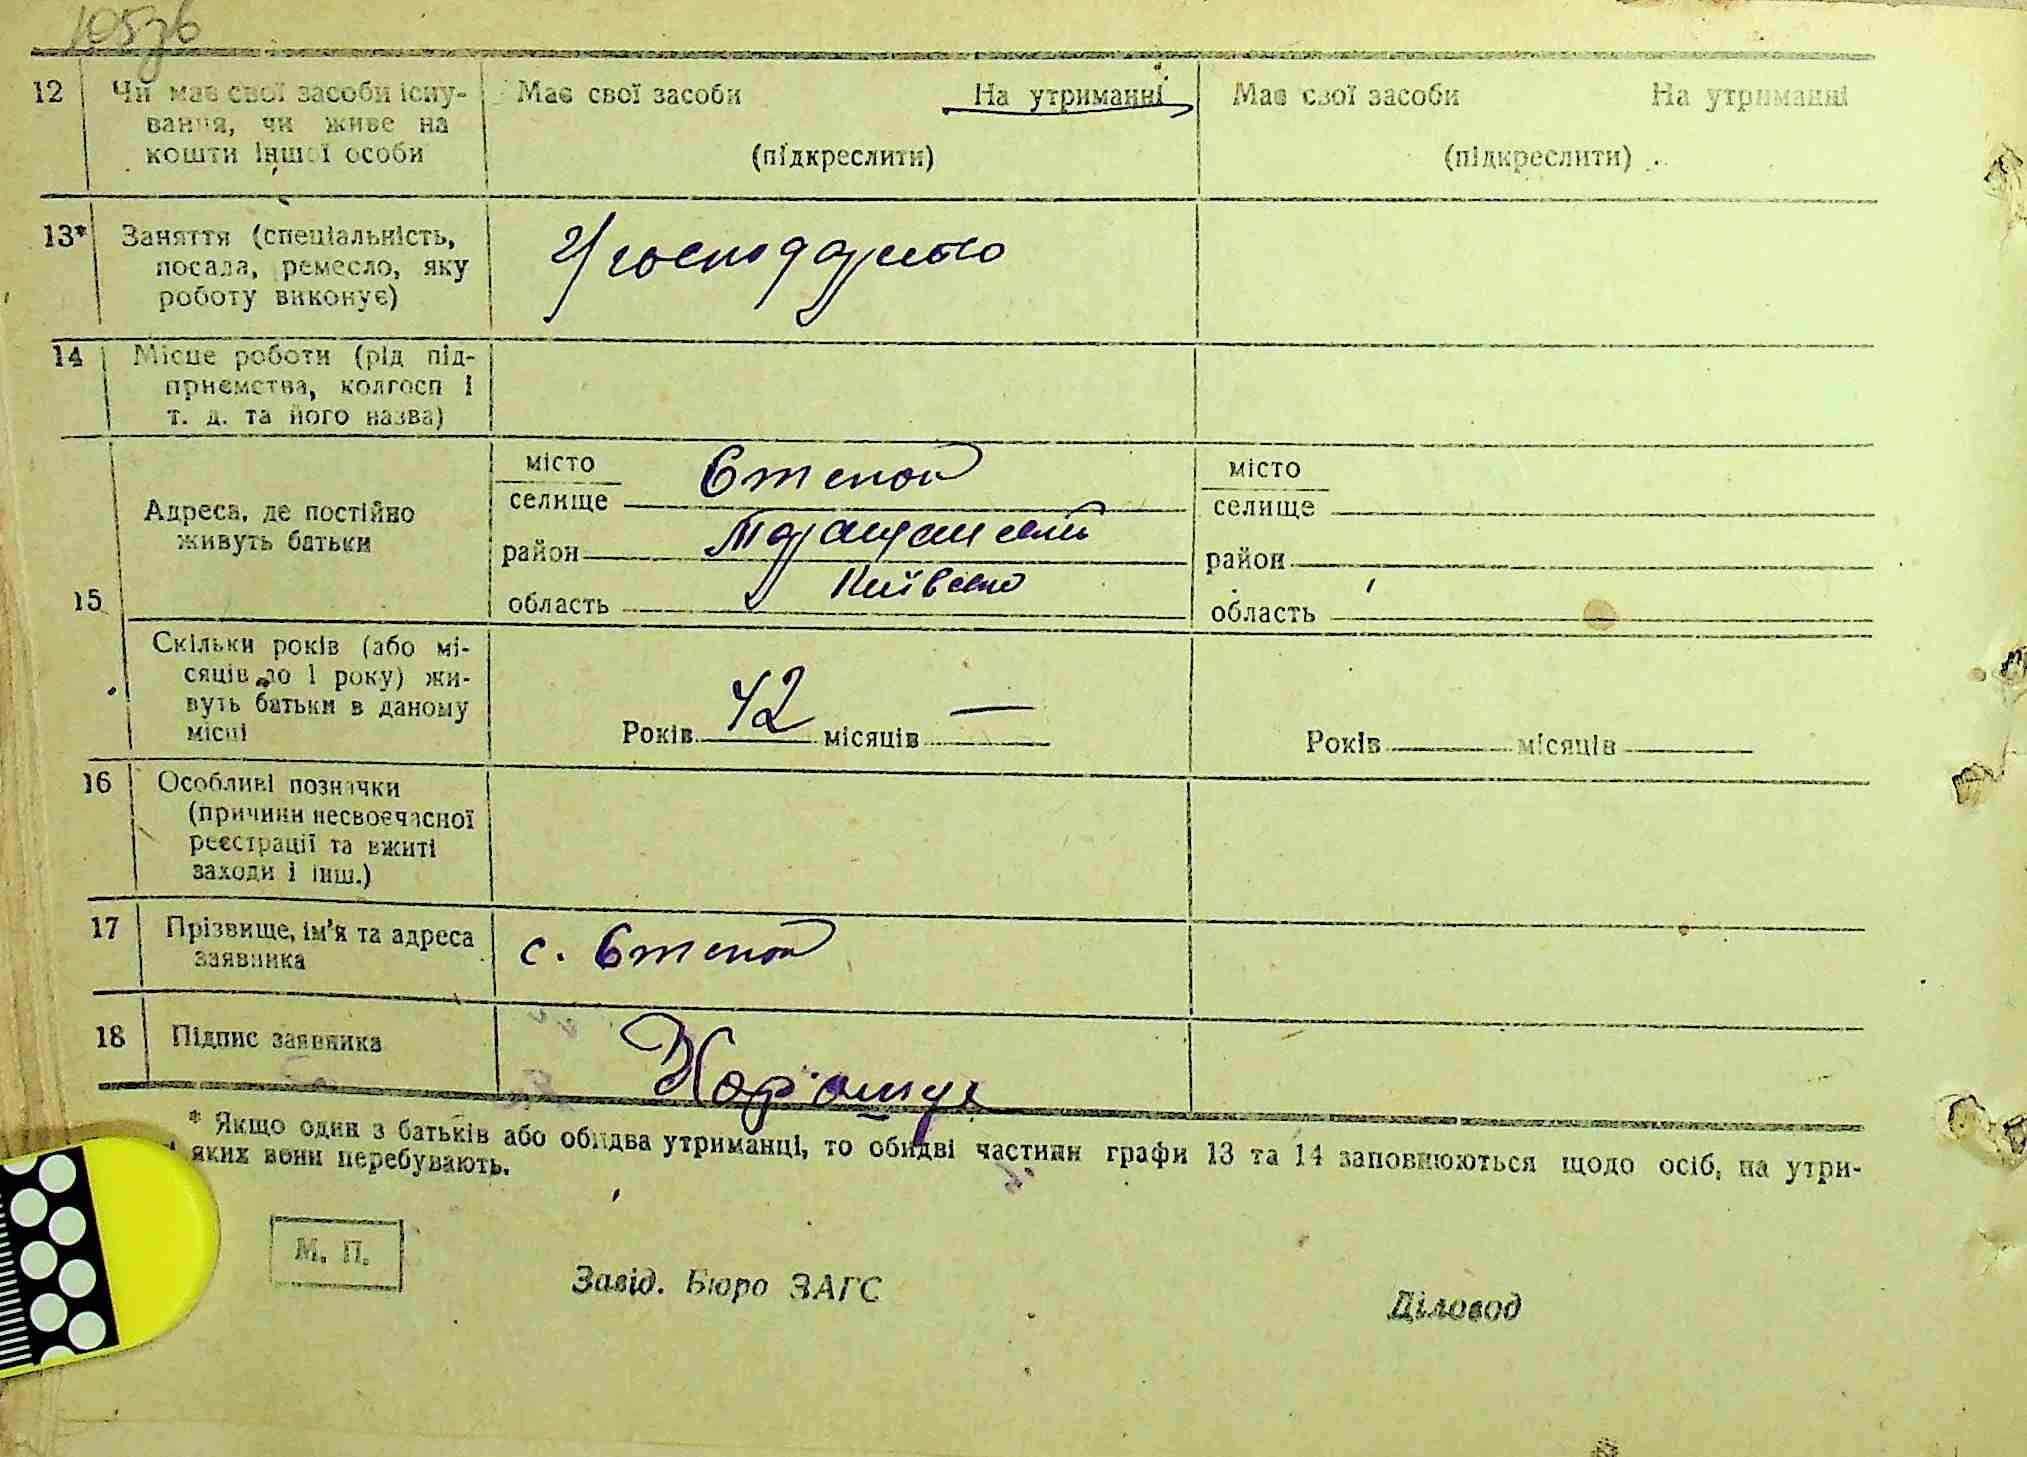 105зв
12 Чи має свої засоби існу-
вання, чи живе на
кошти іншої особи
Має свої засоби На утриманні
(підкреслити)
Має свої засоби На утриманні
(підкреслити)
13* Заняття (спеціальність,
посада, ремесло, яку
роботу виконує)
14 Місце роботи (рід під-
приємства, колгосп і
т. д. та його назва)
15
Адреса, де постійно
живуть батьки
місто
селище Єтепок
район
область Київська
місто
селище
район
область
Скільки років (або мі-
сяців до 1 року) жи-
вуть батьки в даному
місці
Років 42 місяців —
Років місяців
16 Особливі позначки
(причини несвоєчасної
реєстрації та вжиті
заходи і інш.)
17 Прізвище, ім'я та адреса
заявника
с. Єтепок
18 Підпис заявника
* Якщо один з батьків або обидва утриманці, то обидві частини графи 13 та 14 заповнюються щодо осіб, на утри-
яких вони перебувають.
М. П.
Завід. Бюро ЗАГС
Діловод